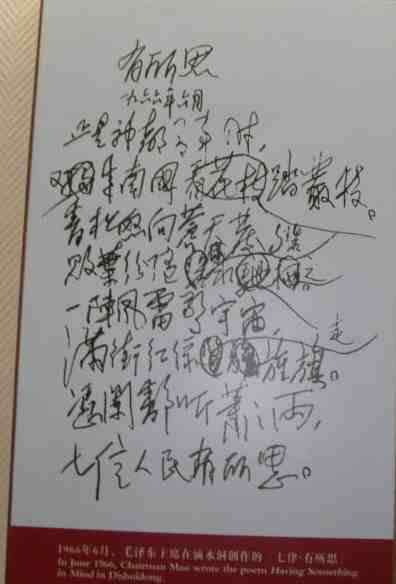 有所思
一九六六年六月
正是神都有事时,
来南国看花枝踏叢枝。
青松怒向苍天
败葉纷随
一阵风雷惊宇宙,
满街红绿走旌旗。
凭阑静听萧萧雨,
七亿人民有所思。
1966年6月，毛泽东主席在滴水洞创作的《七律·有所思》
In June 1966, Chairman Mao wrote the poem Having Something
in Mind in Dishuidong.